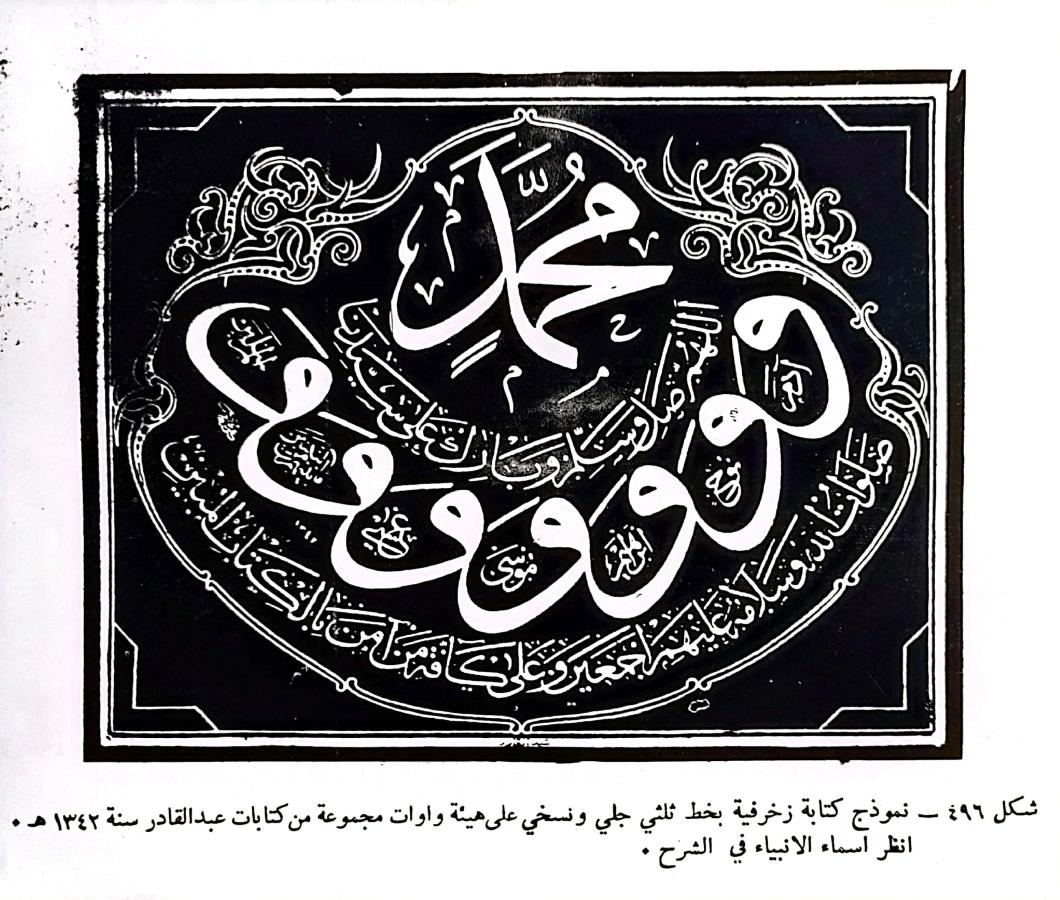 اللهم صل وسلم وبارك على سيدنا
محمد
و و و و و و و
آدم
نوح
ابراهيم
موسى
عيسى
صلوات الله وسلامه عليهم اجمعين وعلى كافة من آمن بالكتاب المبين
شكل ٤٩٦ – نموذج كتابة زخرفية بخط ثلثي جلي ونسخي على هيئة واوات مجموعة من كتابات عبدالقادر سنة ١٣٤٢ هـ ٠
انظر اسماء الانبياء في الشرح ٠